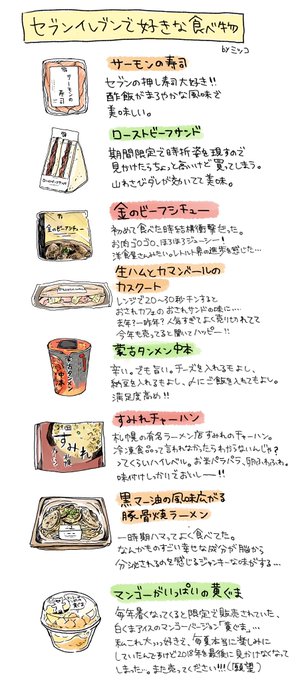 セブンイレブンで好きな食べ物
byミツコ
サーモンの寿司
セブンの押し寿司大好き!!
酢飯がまろやかな風味で
美味しい。
ローストビーフサンド
期間限定で時折姿を現すので
見かけたらちょっと高いけど買ってしまう。
山わさびダレが効いてて美味。
金のビーフシチュー
初めて食べた時結構衝撃だった。
お肉ゴロゴロ、ほろほろジューシー!
洋食屋さんみたい。レトルト界の進歩を感じた…
生ハムとカマンベールの
カスクート
レンジで20〜30秒チンすると
おされカフェのおされサンドの味に…
去年?一昨年?人気すぎてよく売り切れてて
今年も売ってると聞いてハッピー!!
蒙古タンメン中本
辛い。でも旨い。チーズを入れるもよし、
納豆を入れるもよし、〆にご飯を入れてもよし。
満足度高め!!
すみれチャーハン
札幌の有名ラーメン店すみれのチャーハン。
冷凍食品って言われなかったらわからないんじゃ?
ってくらいハイレベル。お米パラパラ、卵ふわふわ。
味付けしっかりでおいしーー!!
黒マー油の風味広がる
豚骨焼ラーメン
一時期ハマってよく食べてた。
なんかものすごい幸せな成分が脳から
分泌されるのを感じるジャンキーな味がする…
マンゴーがいっぱいの黄ぐま
毎年暑くなってくると限定で販売されていた、
白くまアイスのマンゴーバージョン「黄ぐま」…
私これ大っっ好きで、毎夏本当に楽しみに
していたんですけど2018年を最後に見かけなくなって
しまった…。また売ってください!!!(願望)
サーモンの
寿司
金のビーフシチュー
蒙古タンメン
中本
すみれ